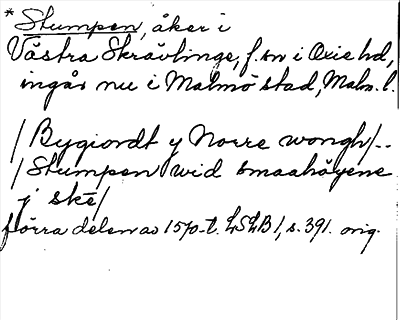 * Stumpen, åker i
Västra Skrävlinge, f. sn i Oxie hd,
ingår nu i Malmö stad, Malm. l.
/Bygiordt y Norre wongh/..
/Stumpen wid smaahöyene
y ske/
förra delen av 1570-t. LSLB 1, s. 391. orig.